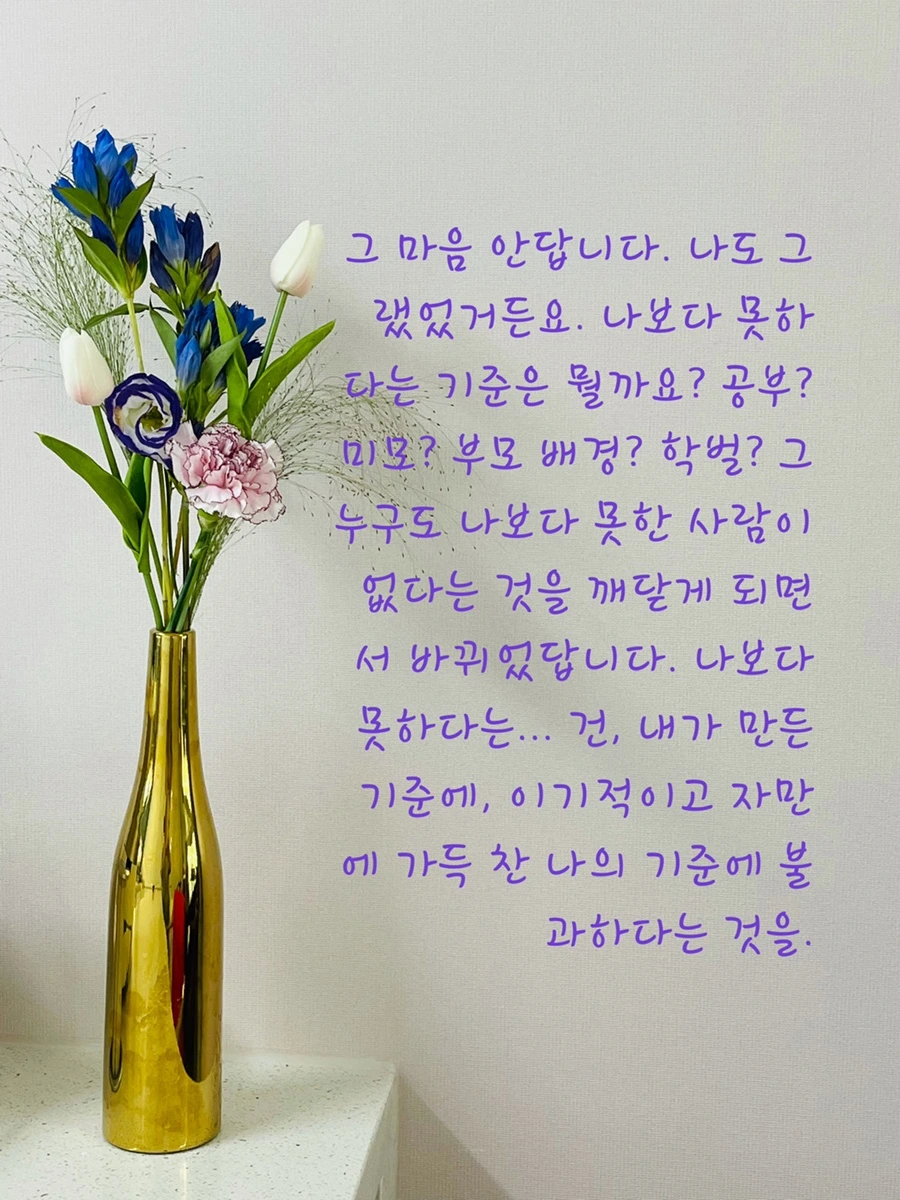 그 마음 안답니다. 나도 그
랬었거든요. 나보다 못하
다는 기준은 뭘까요? 공부?
미모? 부모 배경? 학벌? 그
누구도 나보다 못한 사람이
없다는 것을 깨닫게 되면
서 바뀌었답니다. 나보다
못하다는... 건, 내가 만든
기준에, 이기적이고 자만
에 가득 찬 나의 기준에 불
과하다는 것을.